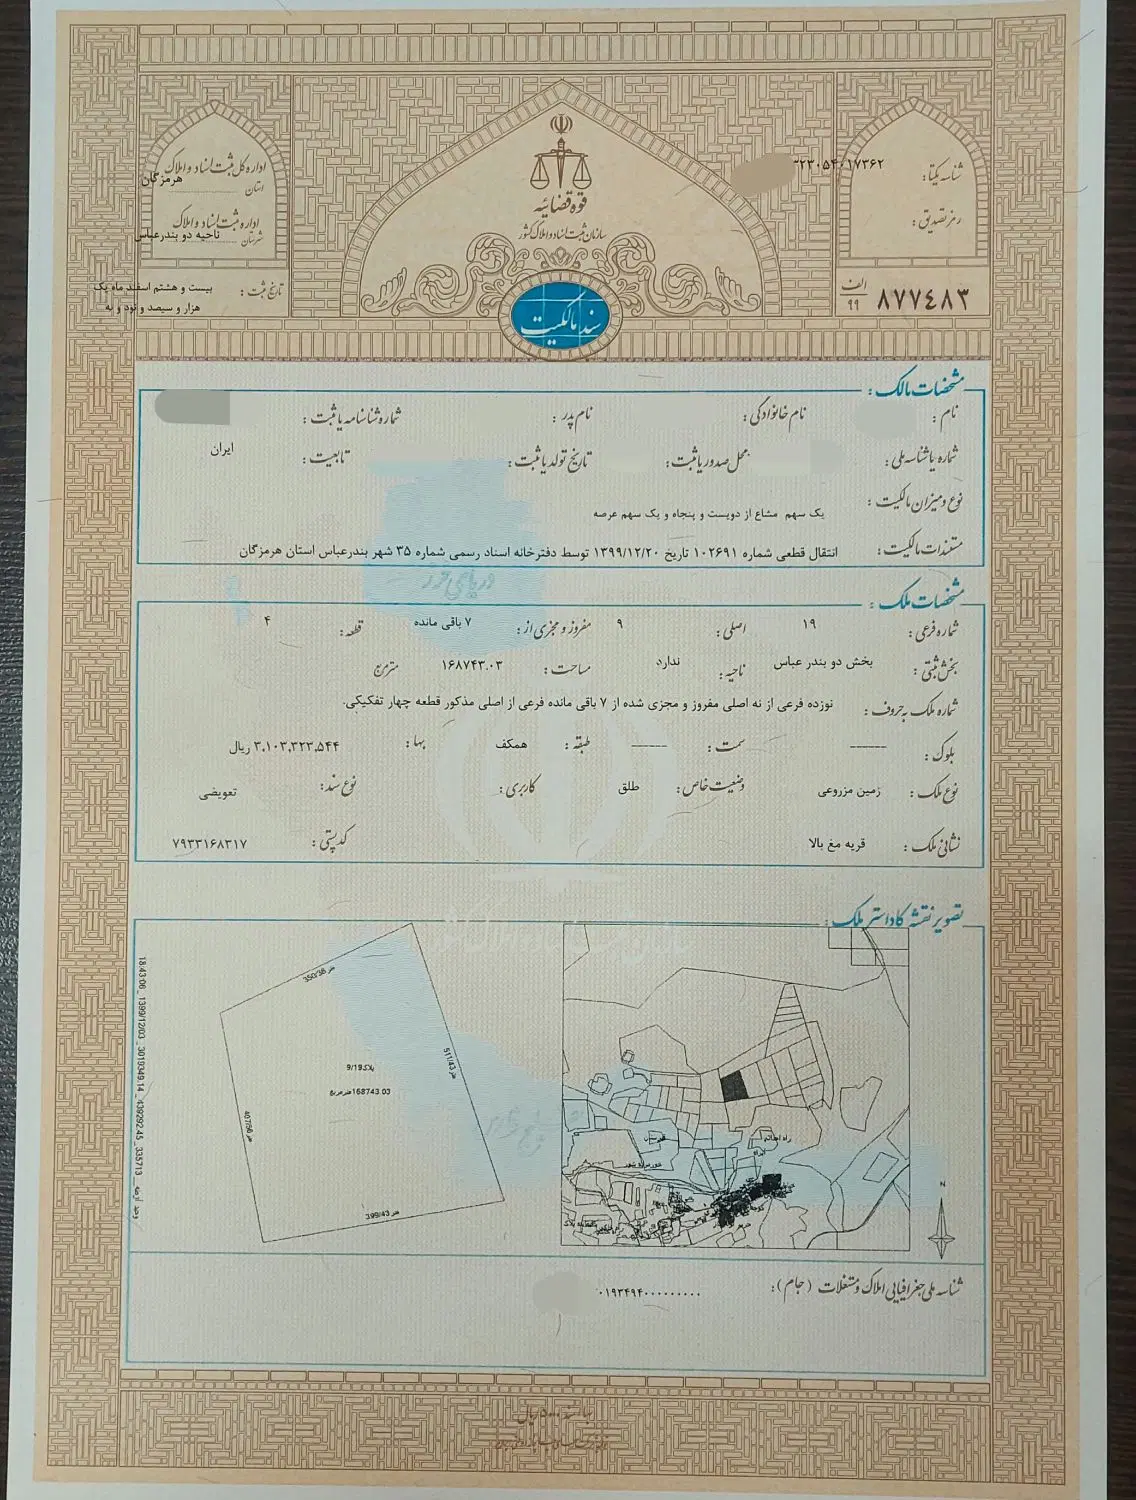 اداره کل ثبت اسناد و املاک
استان هرمزگان
اداره ثبت اسناد و املاک
شهرستان ناحیه دو بندرعباس
تاریخ ثبت : بیست و هشتم اسفند ماه یک
هزار و سیصد و نود و نه
قوه قضائیه
سازمان ثبت اسناد و املاک کشور
سند مالکیت
شناسه یکتا : ۲۳۰۵۴۰۱۷۳۶۲
رمز تصدیق :
الف
۹۹
۸۷۷۴۸۳
مشخصات مالک :
نام : نام خانوادگی : نام پدر : شماره شناسنامه یا ثبت :
شماره یا شناسه ملی : محل صدور یا ثبت : تاریخ تولد یا ثبت : تابعیت : ایران
نوع و میزان مالکیت : یک سهم مشاع از دویست و پنجاه و یک سهم عرصه
مستندات مالکیت : انتقال قطعی شماره ۱۰۲۶۹۱ تاریخ ۱۳۹۹/۱۲/۲۰ توسط دفترخانه اسناد رسمی شماره ۳۵ شهر بندرعباس استان هرمزگان
مشخصات ملک :
شماره فرعی : ۱۹ اصلی : ۹ مفروز و مجزی از : ۷ باقی مانده قطعه : ۴
بخش ثبتی : بخش دو بندر عباس ناحیه : ندارد مساحت : ۱۶۸۷۴۳.۰۳ مترمربع
شماره ملک به حروف : نوزده فرعی از نه اصلی مفروز و مجزی شده از ۷ باقی مانده فرعی از اصلی مذکور قطعه چهار تفکیکی.
بلوک : ------ سمت : ------ طبقه : همکف بها : ۳,۱۰۳,۳۲۳,۵۴۴ ریال
نوع ملک : زمین مزروعی وضعیت خاص : طلق کاربری : نوع سند : تعویضی
نشانی ملک : قریه مغ بالا کد پستی : ۷۹۳۳۱۶۸۳۱۷
تصویر نقشه کاداستر ملک :
350/38 متر
511/43 متر
407/56 متر
399/43 متر
پلاک 9/19
168743.03 مترمربع
18:43:06 _ 1399/12/03 _ 3019349.14 _ 439292.45 _ 335713
N
شناسه ملی جغرافیایی املاک و مستغلات ( جام ) : ۰۱۹۳۴۹۴۰۰۰۰۰۰۰۰۰